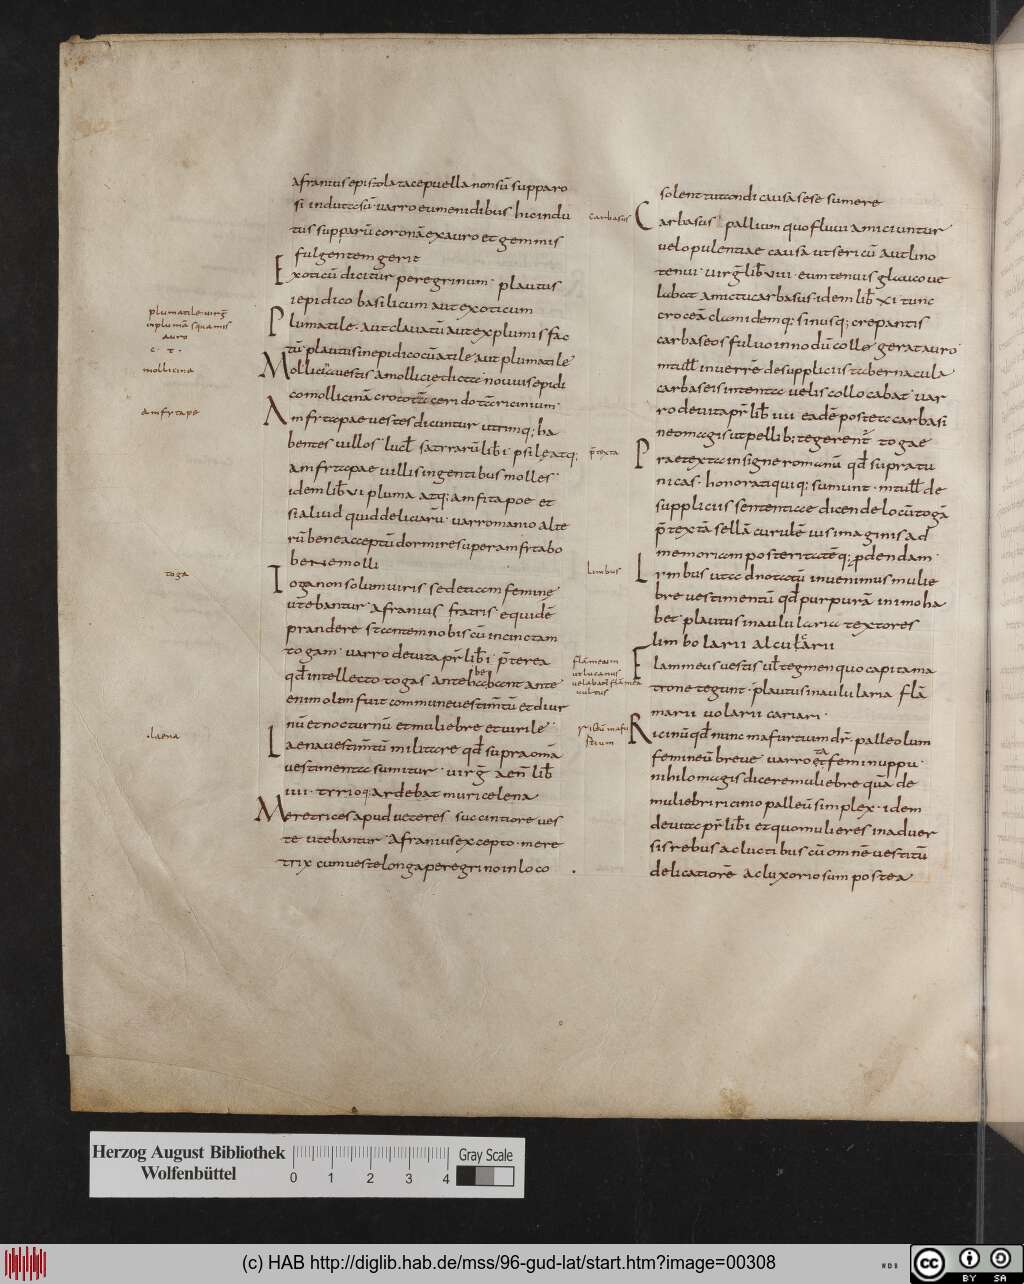 afranius epistola tace puella non sū supparo
si indutasū. varro eumenidibus hic indu
tus supparū coronā ex auro et gemmis
fulgentem gerit
Exoticū dicitur peregrinum. plautus
iepidico basilicum aut exoticum
plumatile virḡ
in plumā squamis
auro
c. t.
Plumatile. aut clavatū aut ex plumis fac
tū. plautus in epidico cūatile aut plumatile
mollicina
Mollicina vestis a mollicie dicta novius epidi
co mollicinā crocotā ceridotā ricinium
amfitape
Amfitapae vestes dicuntur utrimq; ha
bentes villos lucił satirarū libī psile atq;
amfitapae villis ingentibus molles
idem lib̄ vi pluma atq; amfitapoe et
sialiud quid deliciarū. varro manio alte
rū bene acceptū dormire super amfitabo
bene molli
toga
Toga non solum viris sed etiam femine
utebantur. afranius fratris equidē
prandere stantem nobiscū incinctam
togam. varro devita pr̄ libī. p̄terea
qd̄ intellecto togas antehabebant ante
enim olim fuit commune vestimtū et diur
nū et nocturnū et muliebre et virile
laena
Laena vestimtū militare qd̄ supra omā
vestimenta sumitur. virḡ aen̄ lib̄
iiii. tirioq; ardebat murice lena
Meretrices apud veteres succintiore ves
te utebantur afranius excepto. mere
trix cum veste longa peregrino in loco
solent tutandi causa sese sumere
carbasus
Carbasus pallium quo fluvii amiciuntur
vel opulentiae causa ut sericū aut lino
tenui. virḡ lib̄ viii. eum tenuis glauco ve
labat amictu carbasus. idem lib̄ xi tunc
croceā clamidemq; sinusq; crepantis
carbaseos fulvo in nodū collegerat auro
mtułł in verrē de suppliciis tabernacula
carbaseis intenta velis collocabat. var
ro devita pr̄ lib̄ iiii eadē postea carbasi
neo magis ut pellib; tegerent togae
p̄texta
Praetexta insigne romanū qd̄ supra tu
nicas. honorati quiq; sumunt. mtułł de
suppliciis sententiae dicende locū togā
p̄textā sellā curulē ius imaginis ad
memoriam posteritatēq; pdendam
limbus
Lymbus uta adnotatū invenimus mulie
bre vestimentū qd̄ purpurā in imo ha
bet. plautus in aulularia textores
limbolarii alcularii
flāmeum
ut lucanus
velabant flāmea
vultus
Flammeus vestis vł tegmen quo capita ma
trone tegunt. plautus in aulularia flā
marii violarii cariari.
Ricinū qd̄ nunc mafurtium dr̄. palleolum
femineū breve varro ēta femin uppu.
nihilo magis dicere muliebre quā de
muliebri ricinio palleū simplex. idem
devita pr̄ libī et quo mulieres in adver
sis rebus ac luctibus cū omnē vestitū
delicatiorē ac luxoriosum postea
Herzog August Bibliothek
Wolfenbüttel
0 1 2 3 4
Gray Scale
(c) HAB http://diglib.hab.de/mss/96-gud-lat/start.htm?image=00308
WDB
cc BY SA